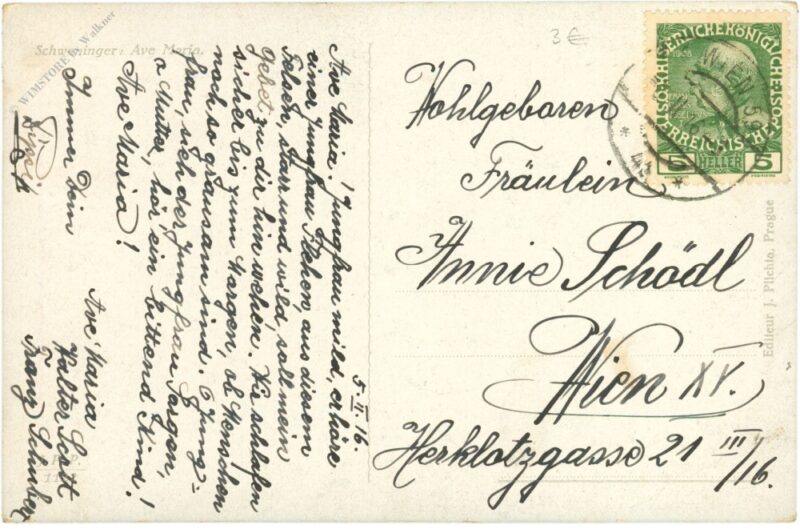 Schweninger: Ave Maria.
© WIMSTORE by Walkner
3 €
5. II. 16.
Ave Maria! Jungfrau mild, erhöre
einer Jungfrau Flehen, aus diesem
Felsen, starr und wild, soll mein
Gebet zu dir hin wehen. Wir schlafen
sicher bis zum Morgen, ob Menschen
noch so grausam sind. O Jung=
frau, sieh der Jungfrau Sorgen,
o Mutter, hör ein bittend Kind!
Ave Maria!
Immer Dein
Ave Maria
Walter Scott
Franz Schubert
Wohlgeboren
Fräulein
Annie Schödl
Wien XV.
Herklotzgasse 21 III/16.
KAISERLICHE KÖNIGLICHE ÖSTERREICHISCHE
5 HELLER 5
WIEN
Editeur J. Plichta, Prague